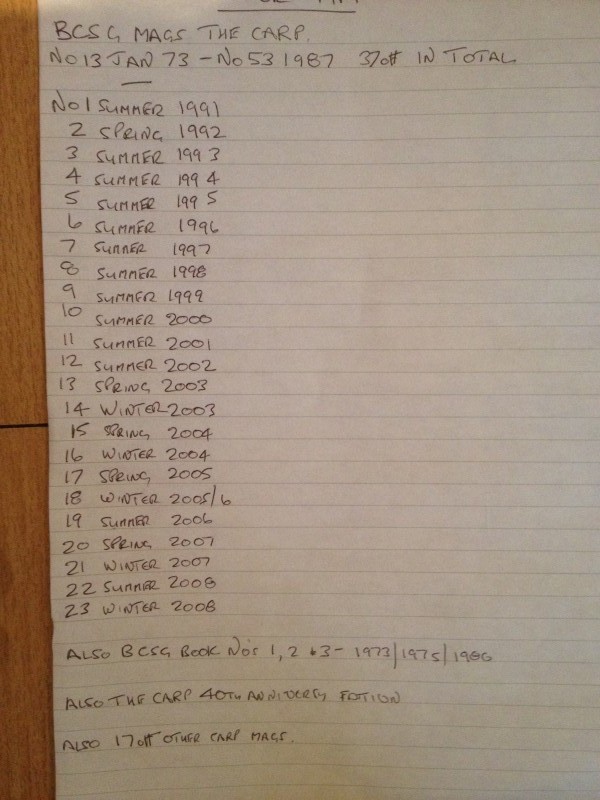 BCSG MAGS THE CARP.
NO 13 JAN 73 - NO 53 1987 37off IN TOTAL
NO 1 SUMMER 1991
2 SPRING 1992
3 SUMMER 1993
4 SUMMER 1994
5 SUMMER 1995
6 SUMMER 1996
7 SUMMER 1997
8 SUMMER 1998
9 SUMMER 1999
10 SUMMER 2000
11 SUMMER 2001
12 SUMMER 2002
13 SPRING 2003
14 WINTER 2003
15 SPRING 2004
16 WINTER 2004
17 SPRING 2005
18 WINTER 2005/6
19 SUMMER 2006
20 SPRING 2007
21 WINTER 2007
22 SUMMER 2008
23 WINTER 2008
ALSO BCSG BOOK NO'S 1, 2 & 3 - 1973/1975/1986
ALSO THE CARP 40TH ANNIVERSY EDTION
ALSO 17off OTHER CARP MAGS.